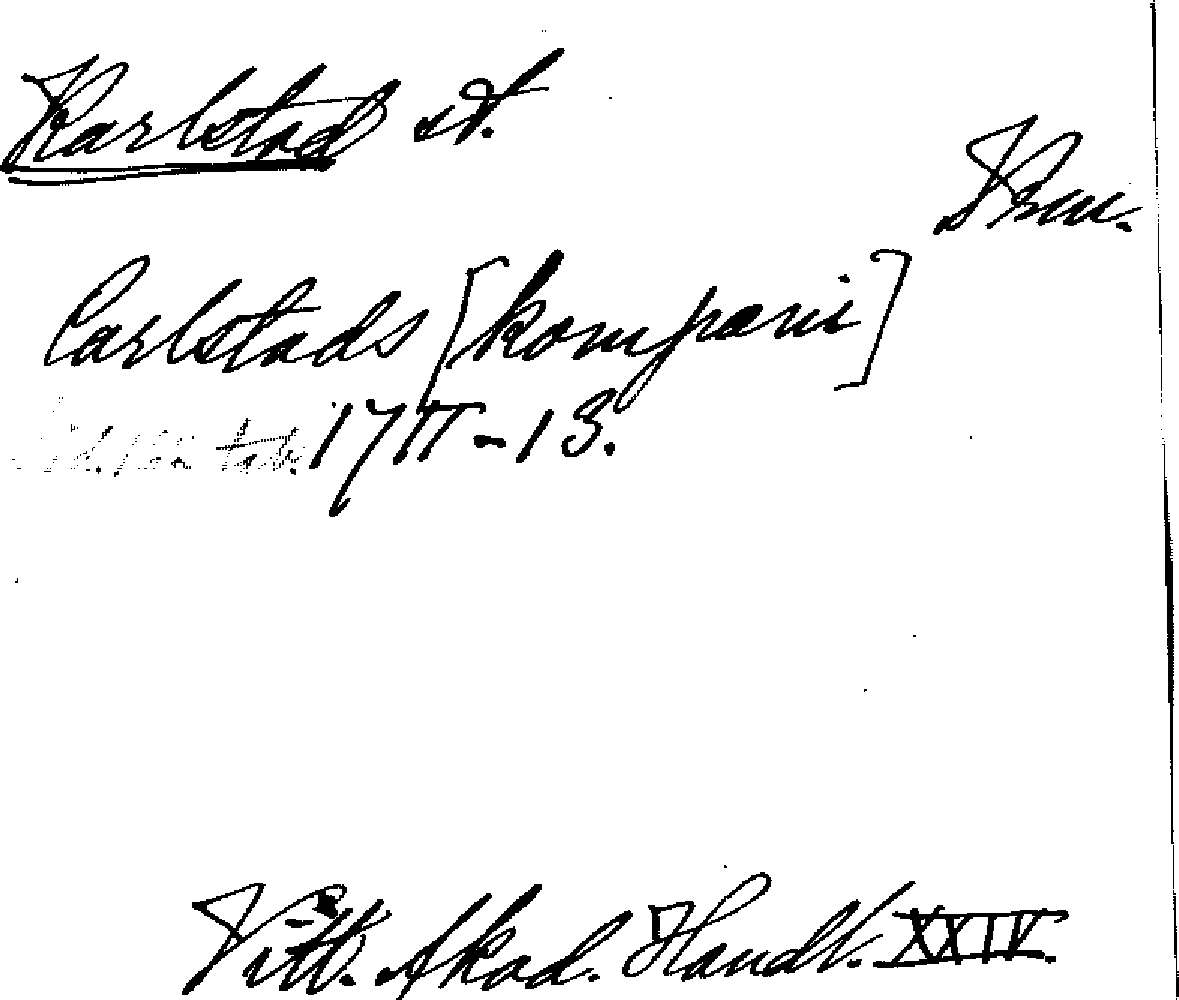 Karlstad st.
Krm.
Carlstads [kompani]
1711-13.
Vitt. Akad. Handl. XXIV.